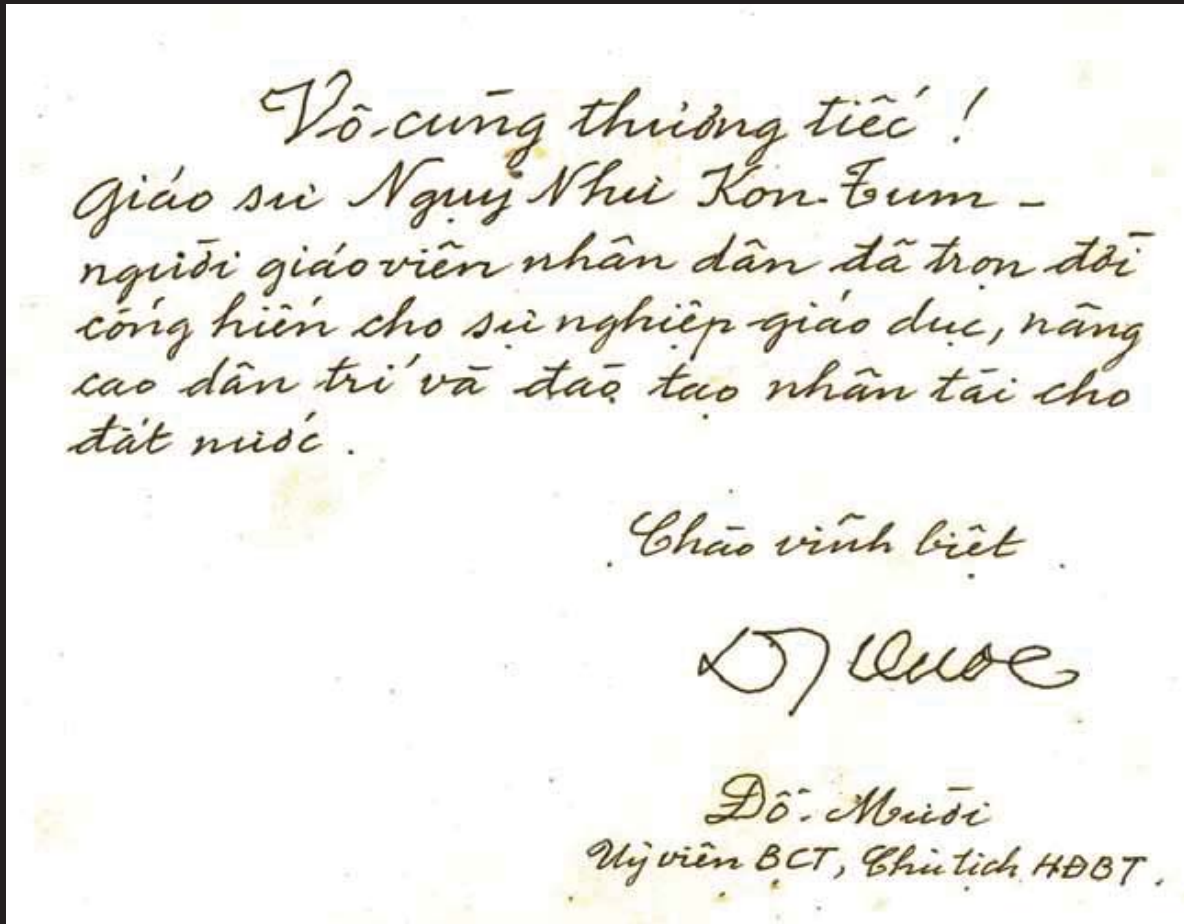 Vô cùng thương tiếc !
Giáo sư Ngụy Như Kon-Tum -
người giáo viên nhân dân đã trọn đời
cống hiến cho sự nghiệp giáo dục, nâng
cao dân trí và đào tạo nhân tài cho
đất nước .
Chào vĩnh biệt
Đỗ Mười
Uỷ viên BCT, Chủ tịch HĐBT .